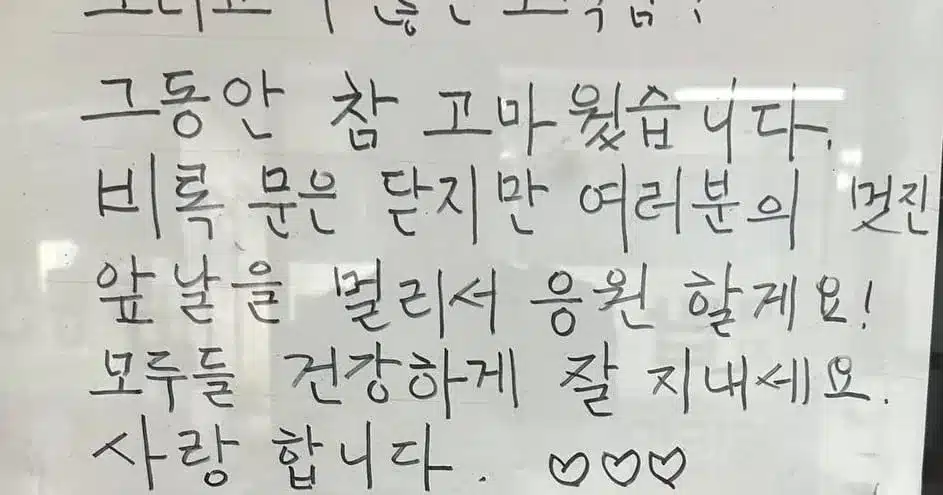 그동안 참 고마웠습니다.
비록 문은 닫지만 여러분의 멋진
앞날을 멀리서 응원 할게요!
모두들 건강하게 잘 지내세요.
사랑 합니다. ♡♡♡